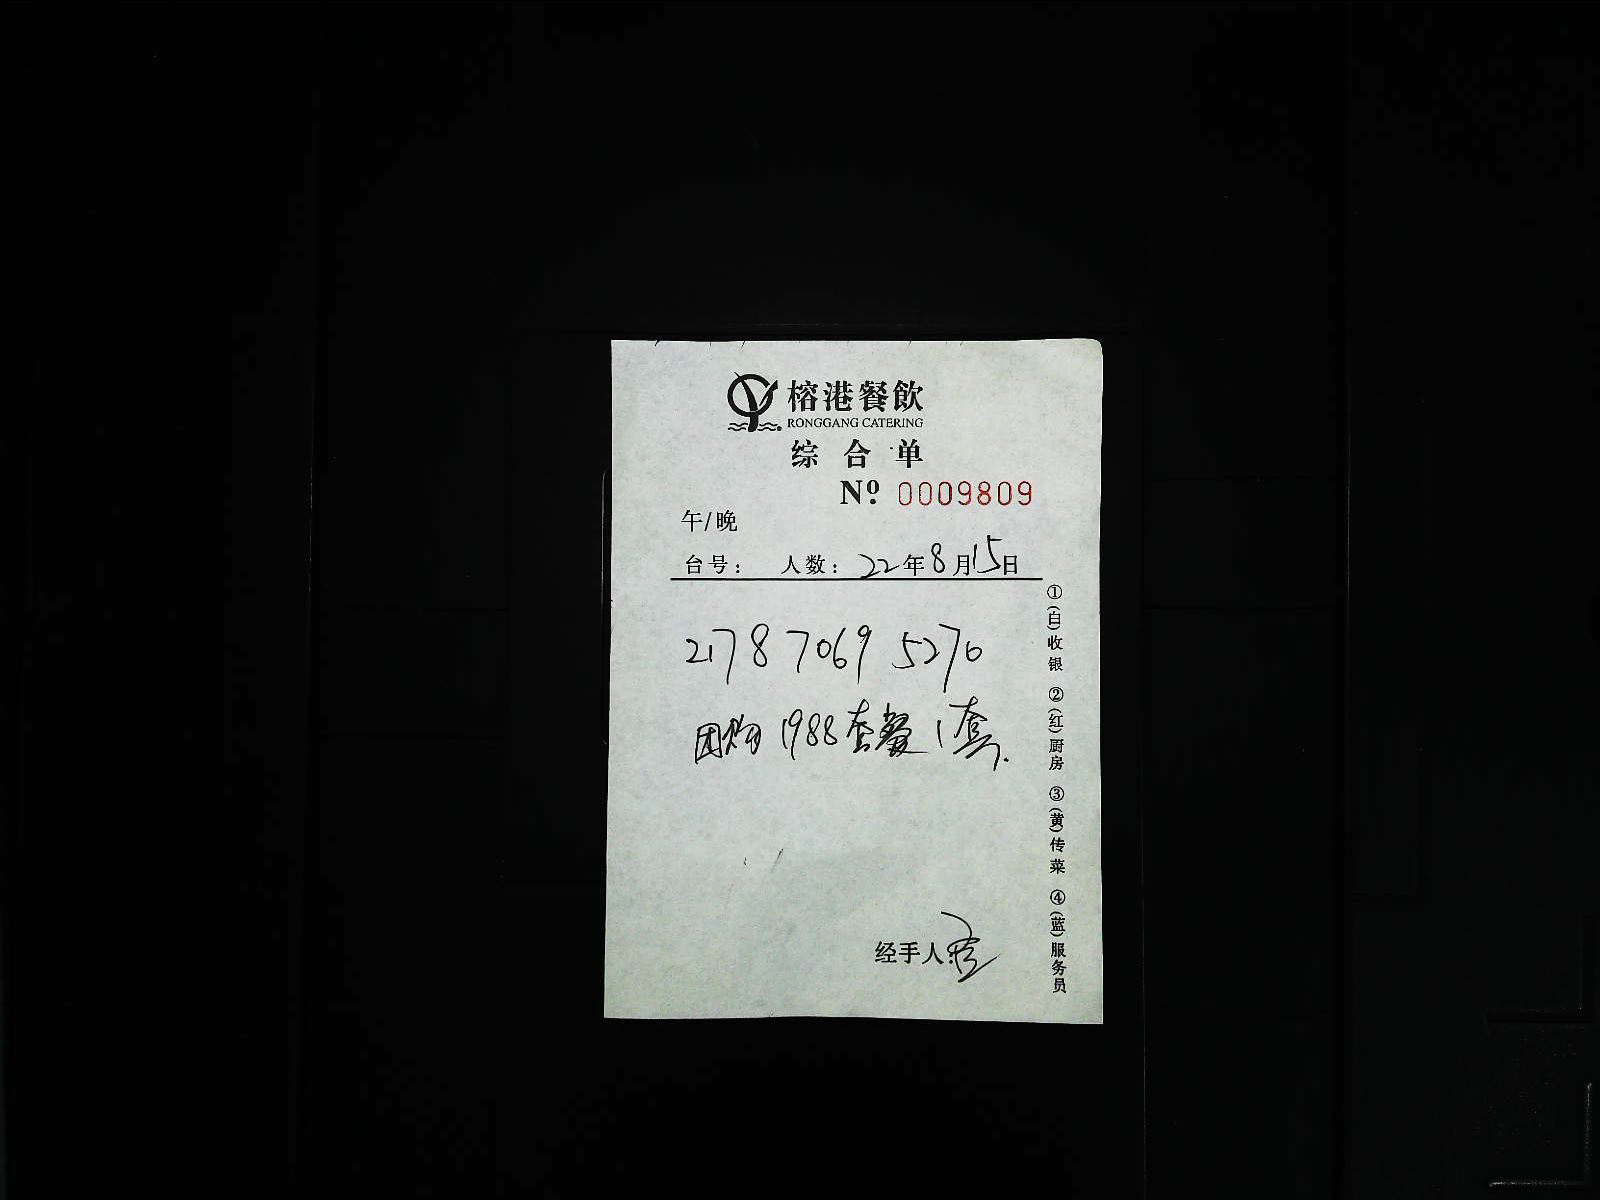 榕港餐飲
RONGGANG CATERING
综合单
Nº 0009809
午/晚
台号： 人数： 22年8月15日
2178 7069 5270
团购 1988套餐 1套.
经手人：
①(白)收银 ②(红)厨房 ③(黄)传菜 ④(蓝)服务员